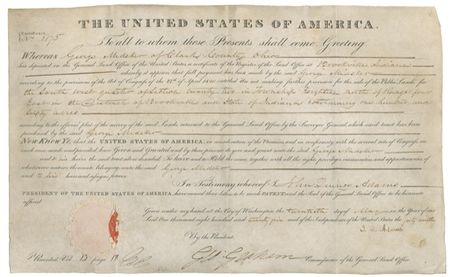 THE UNITED STATES OF AMERICA.
1175
To all to whom these Presents shall come Greeting
Whereas George of Clark County Ohio
has deposited in the General Land Office of the United States a certificate of the Register of the Land Office at Brookville Indiana
whereby it appears that full payment has been made by the said George
according to the provisions of the Act of Congress of the 24th of April 1820 entitled An act making further provision for the sale of the Public Lands for
the South west quarter of section twenty two in Township Eighteen north of Range four
East in the District of Brookville and State of Indiana containing one hundred and
sixty acres
according to the official plat of the survey of the said Lands returned to the General Land Office by the Surveyor General, which said tract has been
purchased by the said George
NOW KNOW YE, that the UNITED STATES OF AMERICA, in consideration of the Premises and in conformity with the several acts of Congress in
such case made and provided Have Given and Granted and by these presents do give and grant unto the said George
and to his heirs the said tract above described To have and to Hold the same, together with all the rights privileges immunities and appurtenances of
whatsoever nature thereunto belonging unto the said George
and to his heirs and assigns forever
In Testimony whereof I John Quincy Adams
PRESIDENT OF THE UNITED STATES OF AMERICA, have caused these Letters to be made PATENT and the Seal of the General Land Office to be hereunto
affixed
Given under my hand at the City of Washington the twentieth day of May in the Year of our
Lord One thousand eight hundred and twenty six and of the Independence of the United States the
By the President
J. Q. Adams
Recorded Vol. Page
Commissioner of the General Land Office